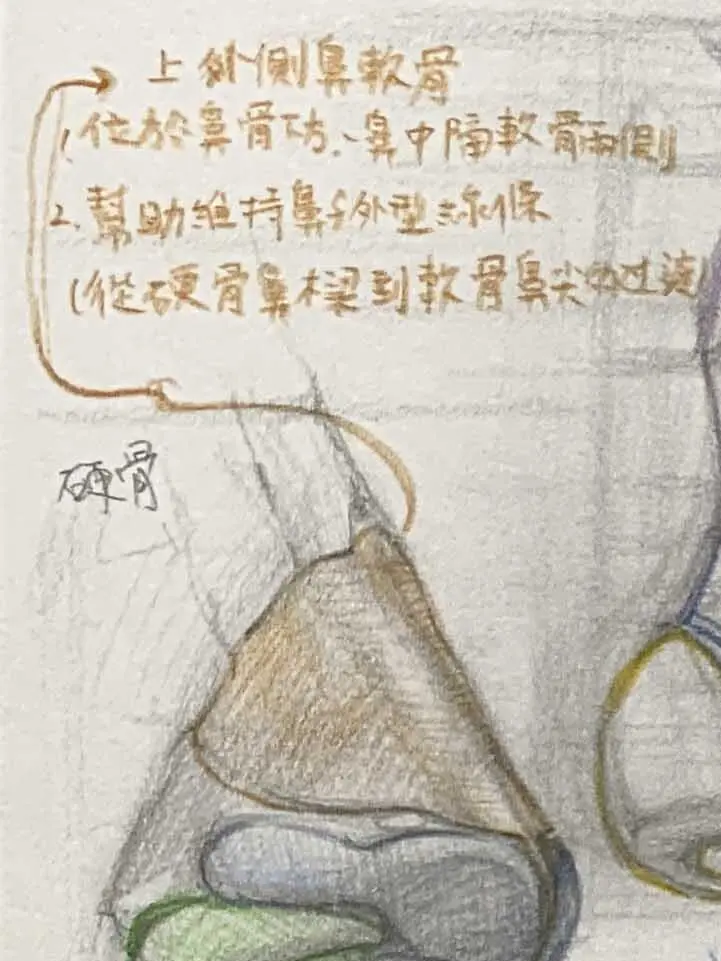 上外側鼻軟骨
1.位於鼻骨下方、鼻中隔軟骨兩側
2.幫助維持鼻子外型線條
(從硬骨鼻樑到軟骨鼻尖的过渡
硬骨